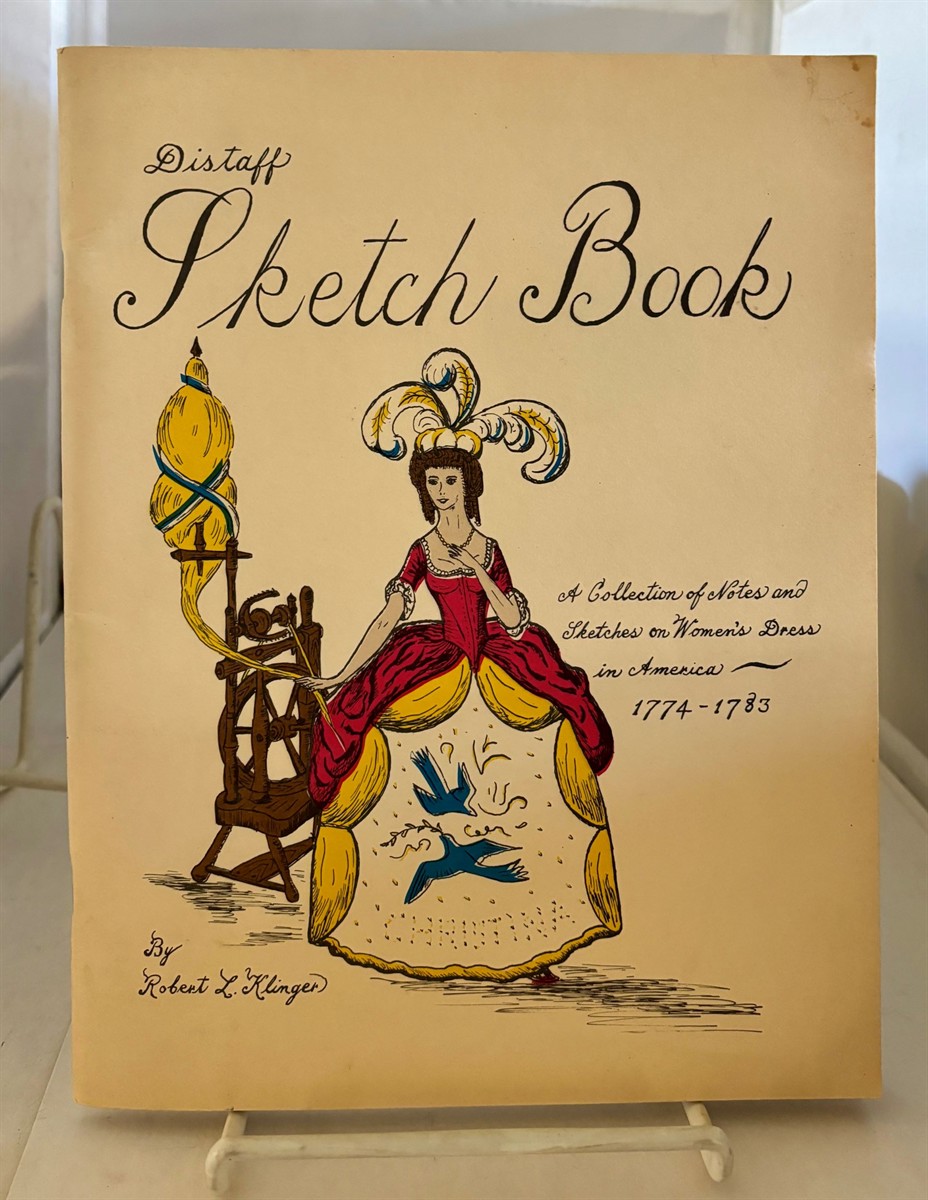 Distaff
Sketch Book
A Collection of Notes and
Sketches on Women's Dress
in America
1774-1783
CHRISTINA
By
Robert L. Klinger